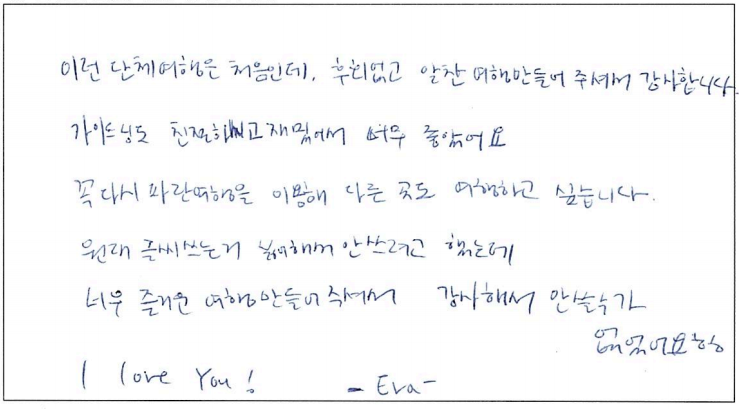 이런 단체여행은 처음인데, 후회없고 알찬 여행만들어 주셔서 감사합니다.
가이드님도 친절하시고 재밌어서 너무 좋았어요
꼭 다시 파란여행을 이용해 다른 곳도 여행하고 싶습니다.
원래 글씨쓰는거 싫어해서 안쓰려고 했는데
너무 즐거운 여행만들어주셔서 감사해서 안쓸수가
없었어요 ㅎㅎ
I love You! - Eva -